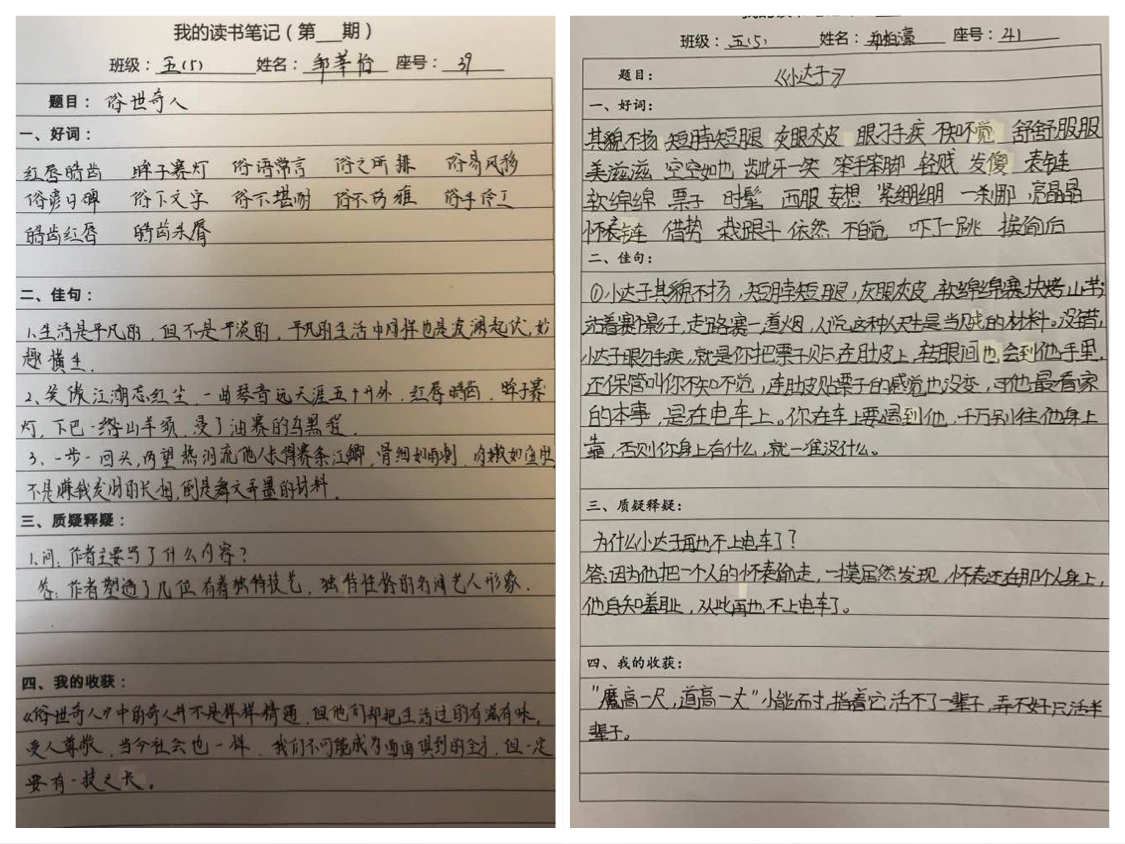 我的读书笔记（第___期）
班级：五(5) 姓名：邹莘怡 座号：39
题目：俗世奇人
一、好词：
红唇皓齿 眸子赛灯 俗语常言 俗之所排 俗易风移
俗谚口碑 俗下文字 俗不堪耐 俗不伤雅 俗手伶工
皓齿红唇 皓齿朱唇
二、佳句：
1.生活是平凡的，但不是平淡的，平凡的生活中同样也是波澜起伏，妙
趣横生.
2、笑傲江湖忘红尘 一曲琴音远天涯五十开外，红唇皓齿，眸子赛
灯，下巴一绺山羊须，浸了油赛的乌黑锃.
3、一步一回头，两望 热泪流 他人长得赛条江鲫，骨细如
不是赚钱发财的长相，倒是舞文弄墨的材料.
三、质疑释疑：
1.问：作者主要写了什么内容？
答：作者塑造了几位有着独特技艺、独特性格的市井艺人形象.
四、我的收获：
《俗世奇人》中的奇人并不是样样精通，但他们却把生活过的有滋有味，
受人尊敬，当今社会也一样，我们不可能成为面面俱到的全才，但一定
要有一技之长。
班级：五(5) 姓名： 座号：41
题目：《小达子》
一、好词：
其貌不扬 短脖短腿 灰眼灰皮 眼疾手疾 不知不觉 舒舒服服
美滋滋 空空如也 龇牙一笑 笨手笨脚 轻贱 发傻 表链
软绵绵 票子 时髦 西服 妄想 紧绷绷 一刹那 亮晶晶
怀表链 借势 栽跟斗 依然 不自觉 吓了一跳 挨偷后
二、佳句：
①小达子其貌不扬，短脖短腿，灰眼灰皮，软绵绵赛块烤山芋；
站着赛个影子，走路赛一道烟，人说这种人天生是当贼的材料。没错，
小达子眼疾手疾，就是你把票子贴在肚皮上，转眼间也会到他手里，
还保管叫你不知不觉，连肚皮贴票子的感觉也没变，可他最看家
的本事，是在电车上。你在车上要遇到他，千万别往他身上
靠，否则你身上有什么，就一准没什么。
三、质疑释疑：
为什么小达子再也不上电车了？
答：因为他把一个人的怀表偷走，一摸居然发现，怀表还在那个人身上，
他自知羞耻，从此再也不上电车了。
四、我的收获：
"魔高一尺，道高一丈"小能而才，指着它活不了一辈子，弄不好只活半
辈子。